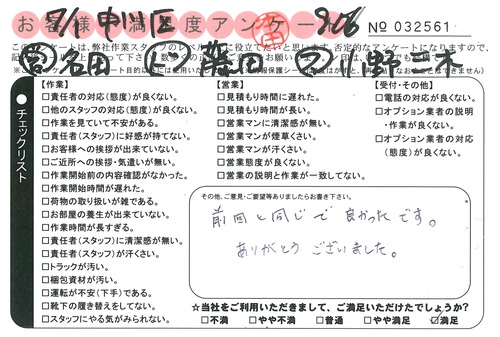 お客様満足度アンケート
7/1 中川区
No 032561
このアンケートは、弊社作業スタッフのレベル
チェックリスト
【作業】
□責任者の対応(態度)が良くない。
□他のスタッフの対応(態度)が良くない。
□作業を見ていて不安がある。
□責任者(スタッフ)に好感が持てない。
□お客様への挨拶が出来ていない。
□ご近所への挨拶・気遣いが無い。
□作業開始前の内容確認がなかった。
□作業開始時間が遅れた。
□荷物の取り扱いが雑である。
□お部屋の養生が出来ていない。
□作業時間が長すぎる。
□責任者(スタッフ)に清潔感が無い。
□責任者(スタッフ)が汗くさい。
□トラックが汚い。
□梱包資材が汚い。
□運転が不安(下手)である。
□靴下の履き替えをしていない。
□スタッフにやる気がみられない。
【営業】
□見積もり時間に遅れた。
□見積もり時間が長い。
□営業マンに清潔感が無い。
□営業マンが煙草くさい。
□営業マンが汗くさい。
□営業態度が良くない。
□営業の説明と作業が一致してない。
【受付・その他】
□電話の対応が良くない。
□オプション業者の説明
・作業が良くない。
□オプション業者の対応
(態度)が良くない。
その他、ご意見・ご要望等ありましたらお書き下さい。
前回と同じで良かったです。
ありがとうございました。
☆当社をご利用いただきまして、ご満足いただけたでしょうか?
□不満 □やや不満 □普通 □やや満足 ☑満足